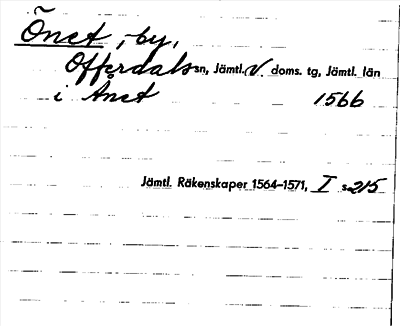 Önet, by,
Offerdals sn, Jämtl. V. doms. tg, Jämtl. län
i Ånet 1566
Jämtl. Räkenskaper 1564–1571, I s. 215